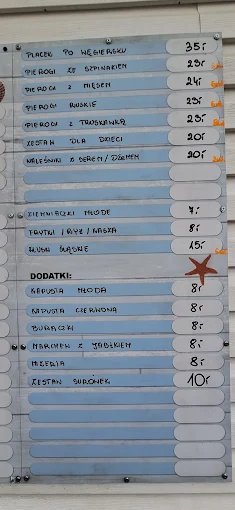 PLACEK PO WĘGIERSKU 35,-
PIEROGI ZE SZPINAKIEM 23,-
PIEROGI Z MIĘSEM 24,-
PIEROGI RUSKIE 23,-
PIEROGI Z TRUSKAWKĄ 23,-
ZESTAW DLA DZIECI 20,-
NALEŚNIKI Z SEREM/DŻEMEM 20,-
ZIEMNIACZKI MŁODE 7,-
FRYTKI / RYŻ / KASZA 8,-
KLUSKI ŚLĄSKIE 15,-
DODATKI:
KAPUSTA MŁODA 8,-
KAPUSTA CZERWONA 8,-
BURACZKI 8,-
MARCHEW Z JABŁKIEM 8,-
MIZERIA 8,-
ZESTAW SURÓWEK 10,-